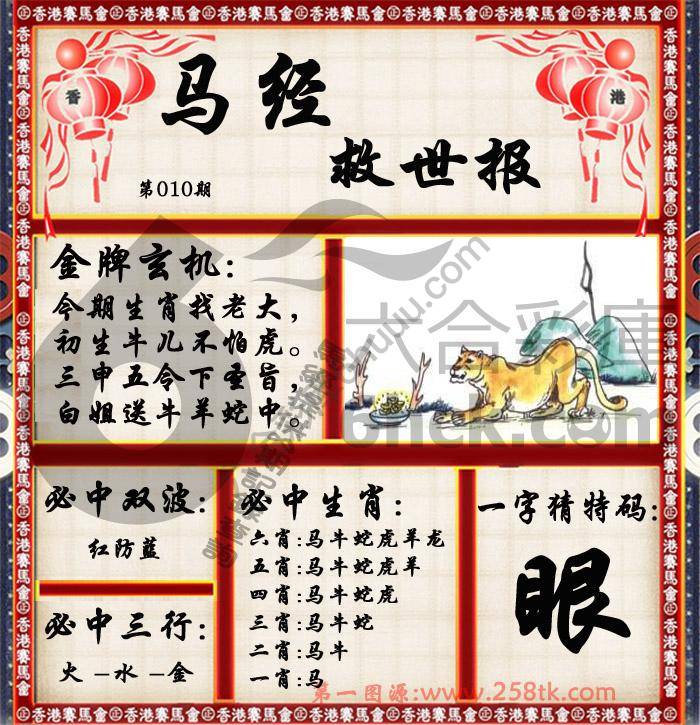 香港賽馬會
香 港
马经
救世报
第010期
金牌玄机:
今期生肖找老大,
初生牛儿不怕虎。
三申五令下圣旨,
白姐送牛羊蛇中。
六合彩庫
必中双波:
红防蓝
必中三行:
火－水－金
必中生肖:
六肖:马牛蛇虎羊龙
五肖:马牛蛇虎羊
四肖:马牛蛇虎
三肖:马牛蛇
二肖:马牛
一肖:马
一字猜特码:
眼
第一图源:www.258tk.com